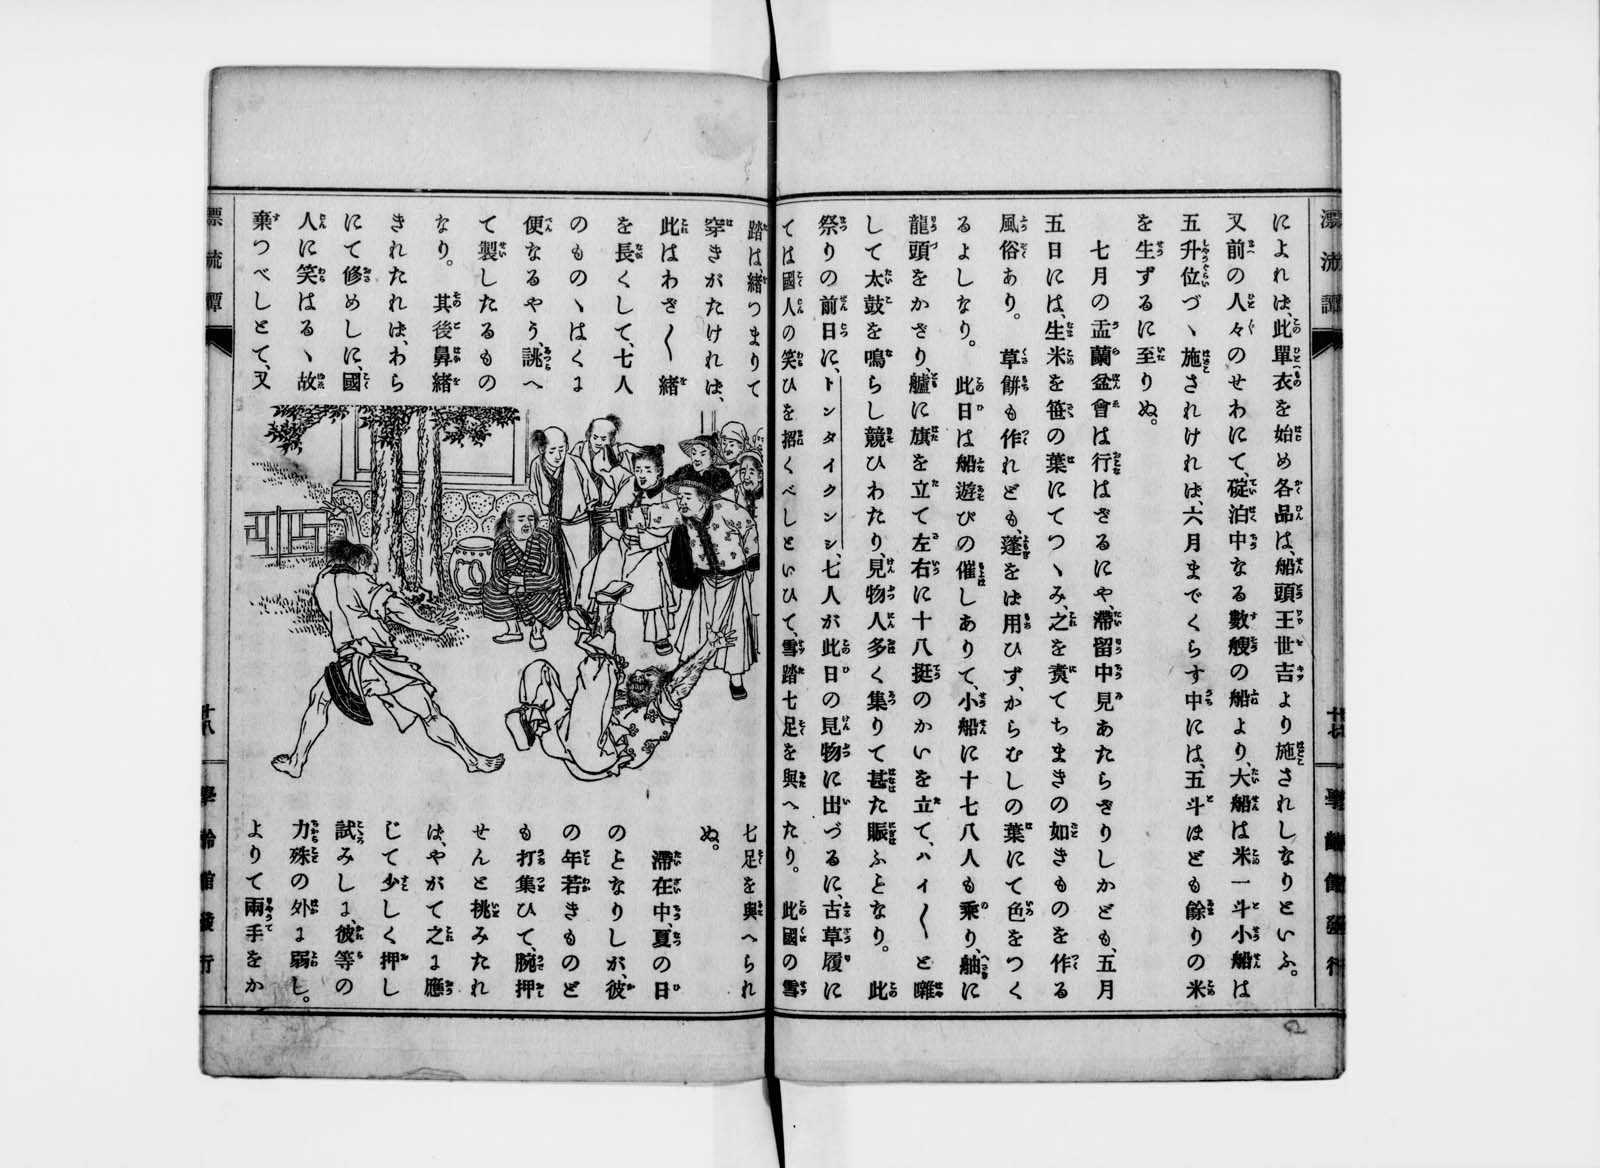 漂流譚
十七
學齡館發行
によれは、此單衣を始め各品は、船頭王世吉より施されしなりといふ。
又前の人々のせわにて、碇泊中なる數艘の船より、大船は米一斗小船は
五升位づゝ施されけれは、六月までくらす中には、五斗ほども餘りの米
を生ずるに至りぬ。
七月の盂蘭盆會は行はざるにや、滯留中見あたらざりしかども、五月
五日には、生米を笹の葉にてつゝみ、之を煑てちまきの如きものを作る
風俗あり。草餅も作れども、蓬をは用ひず、からむしの葉にて色をつく
るよしなり。此日は船遊びの催しありて、小船に十七八人も乘り、舳に
龍頭をかざり、艫に旗を立て左右に十八挺のかいを立て、ハイ〳〵と囃
して太鼓を鳴らし競ひわたり、見物人多く集りて甚た賑ふとなり。此
祭りの前日に、トンタイクンシ、七人が此日の見物に出づるに、古草履に
ては國人の笑ひを招くべしといひて、雪踏七足を與へたり。此國の雪
踏は、緒つまりて
穿きがたけれは、
此はわざ〳〵緒
を長くして、七人
のものゝはくに
便なるやう、誂へ
て製したるもの
なり。其後鼻緒
きれたれは、わら
にて修めしに、國
人に笑はるゝ故
棄つべしとて、又
七足を與へられ
ぬ。
滯在中、夏の日
のとなりしが、彼
の年若きものど
も打集ひて、腕押
せんと挑みたれ
は、やがて之に應
じて少しく押し
試みしに、彼等の
力殊の外に弱し。
よりて兩手をか
漂流譚
十八
學齡館發行